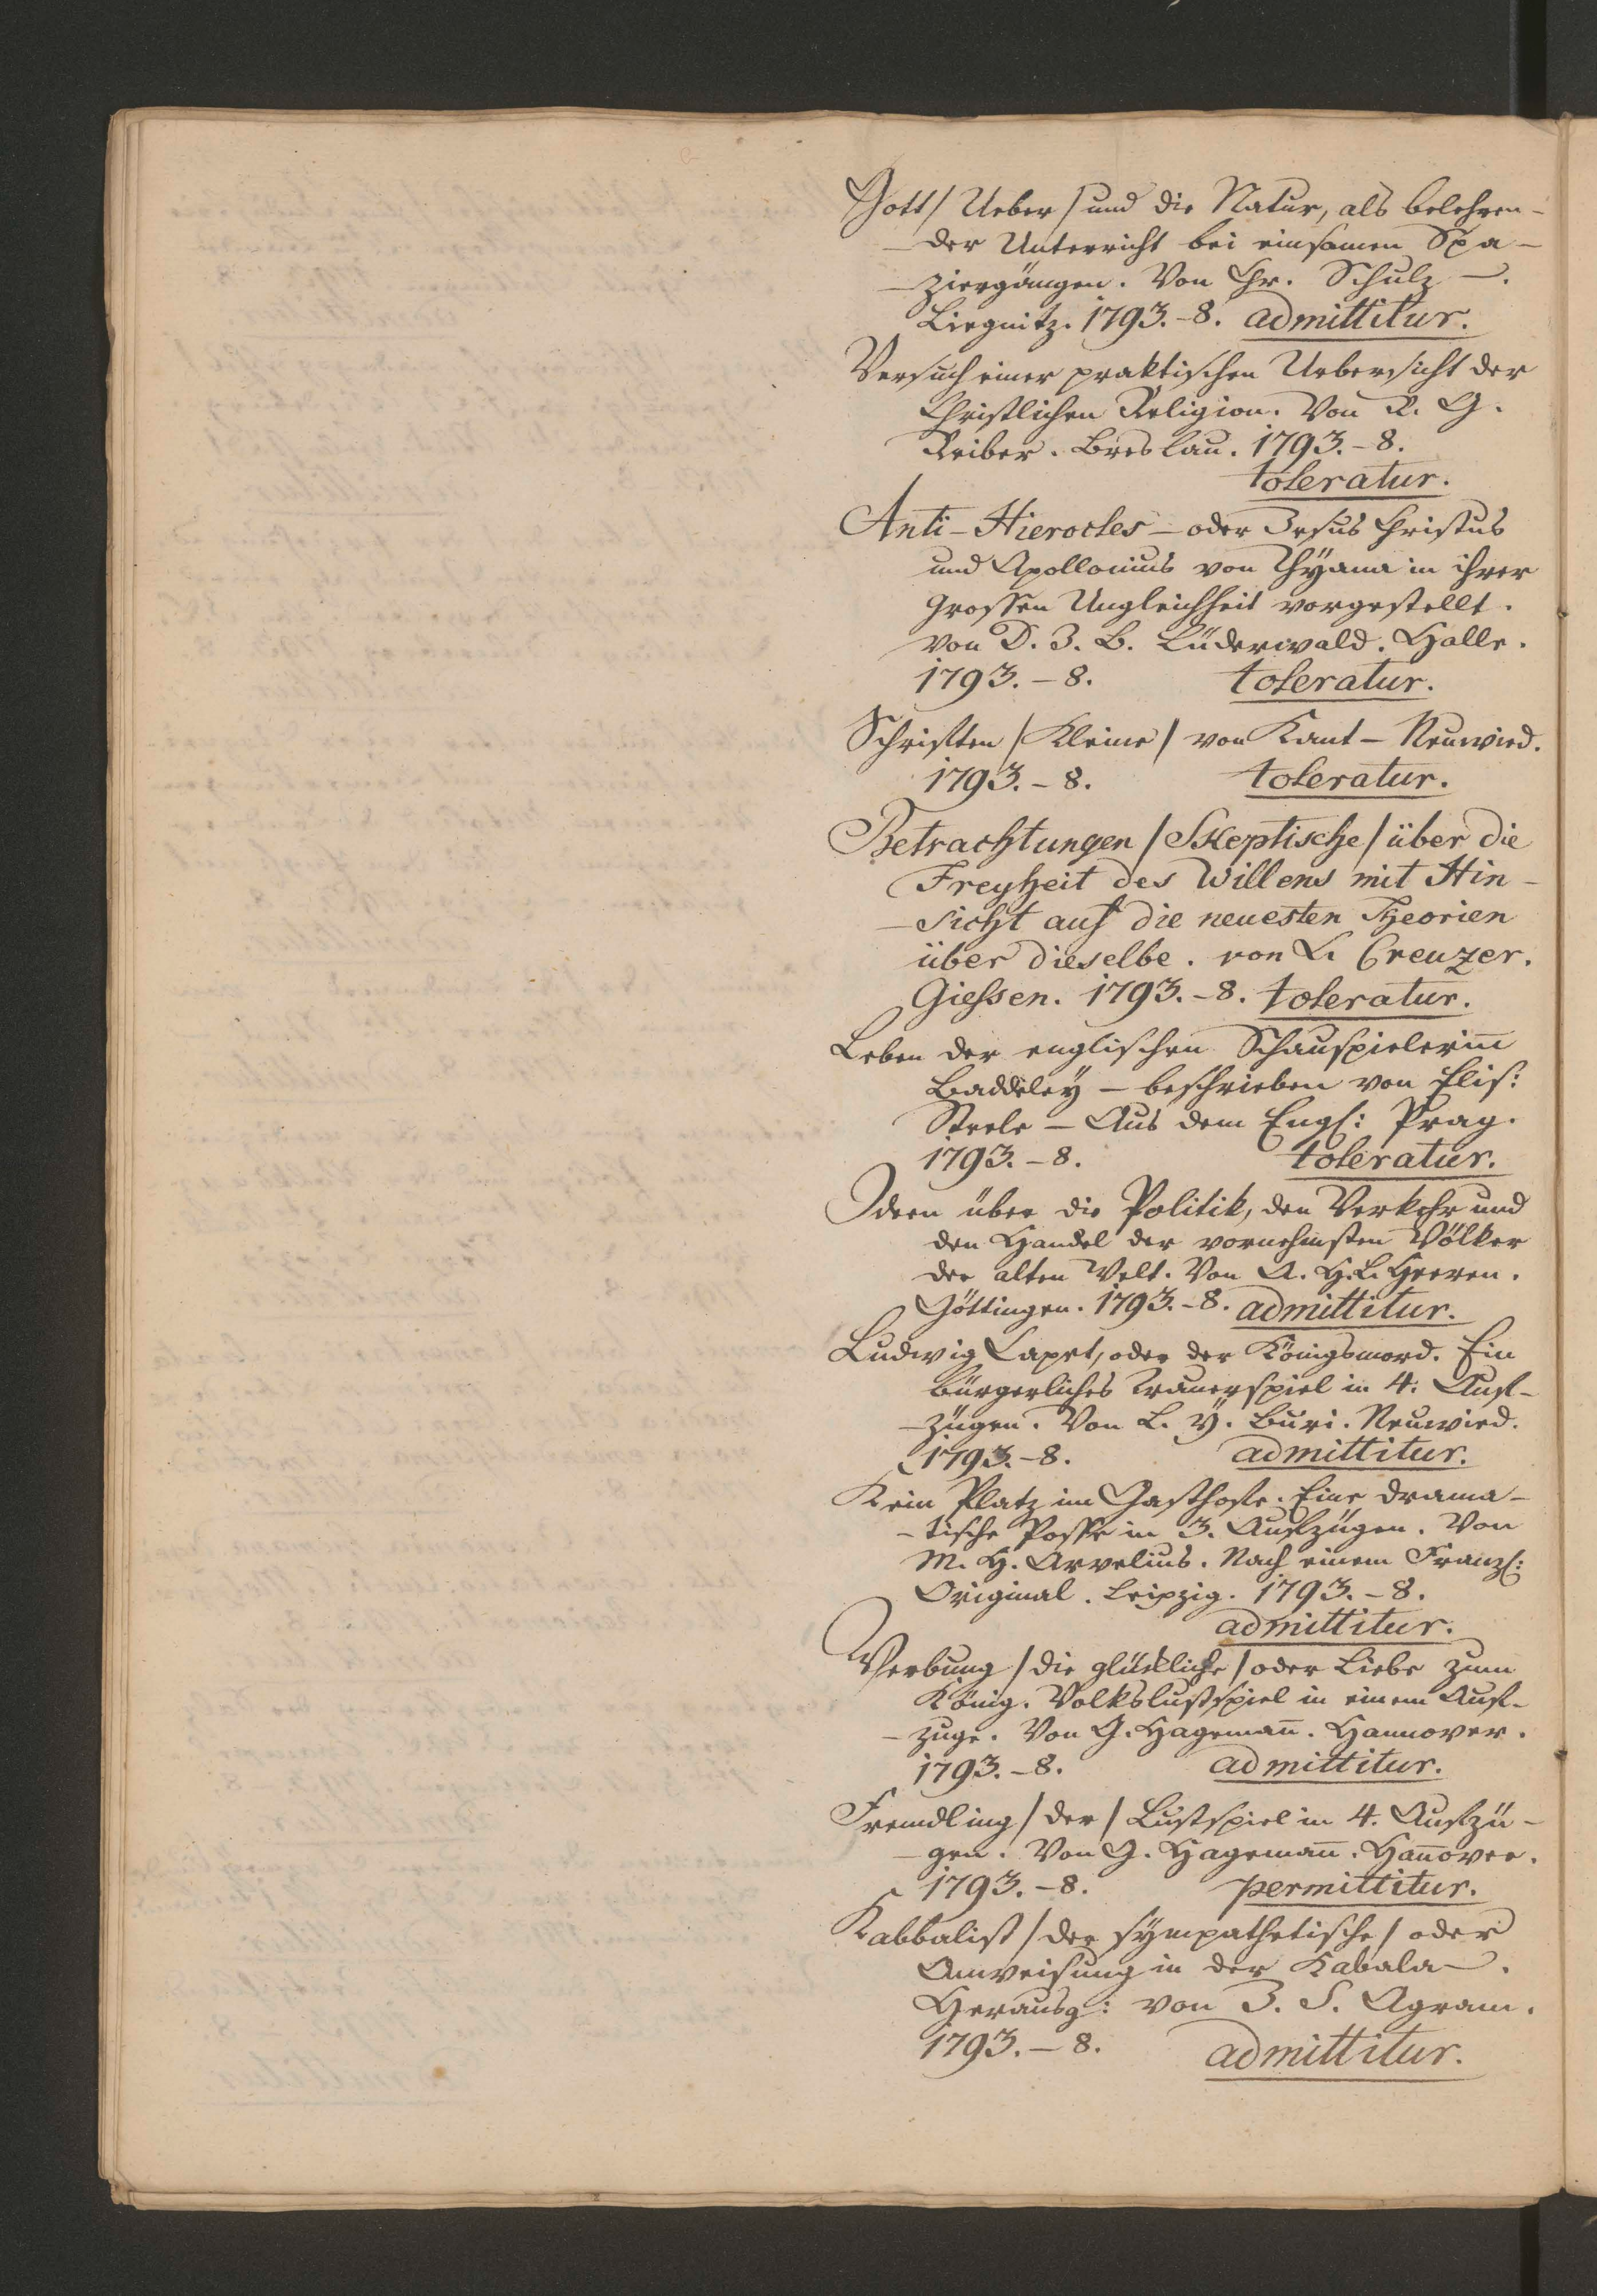 Gott / Ueber / und die Natur, als belehren-
-der Unterricht bei einsamen Spa-
-ziergängen. Von Chr. Schulz —.
Liegnitz. 1793.-8. admittitur.
Versuch einer praktischen Uebersicht der
Christlichen Religion. Von K. G.
Reiber. Breslau. 1793.-8.
toleratur.
Anti-Hierocles - oder Jesus Christus
und Apollonius von Thyana in ihrer
grossen Ungleichheit vorgestellt.
von D. J. B. Lüderwald. Halle.
1793.-8. toleratur.
Schriften / Kleine / von Kant - Neuwied.
1793.-8. toleratur.
Betrachtungen / Skeptische / über die
Freyheit des Willens mit Hin-
-sicht auf die neuesten Theorien
über dieselbe. von L. Creuzer.
Giessen. 1793.-8. toleratur.
Leben der englischen Schauspielerin̄
Baddeley - beschrieben von Elis:
Steele - Aus dem Engl: Prag.
1793.-8. toleratur.
Ideen über die Politik, den Verkehr und
den Handel der vornehmsten Völker
der alten Welt. Von A. H. L. Heeren.
Göttingen. 1793.-8. admittitur.
Ludwig Capet, oder der Königsmord. Ein
bürgerliches Trauerspiel in 4. Auf-
-zügen. Von L. Y. Buri. Neuwied.
1793.-8. admittitur.
Kein Platz im Gasthofe. Eine drama-
-tische Posse in 3. Aufzügen. Von
M. H. Arvelius. Nach einem Franz:
Original. Leipzig. 1793.-8.
admittitur.
Werbung / die glückliche / oder Liebe zum
König. Volkslustspiel in einem Auf-
-zuge. Von G. Hageman̄. Hannover.
1793.-8. admittitur.
Fremdling / der / Lustspiel in 4. Aufzü-
-gen. Von G. Hageman̄. Han̄over.
1793.-8. permittitur.
Kabbalist / der sympathetische / oder
Anweisung in der Kabala —.
Herausg: von J. S. Agram.
1793.-8. admittitur.